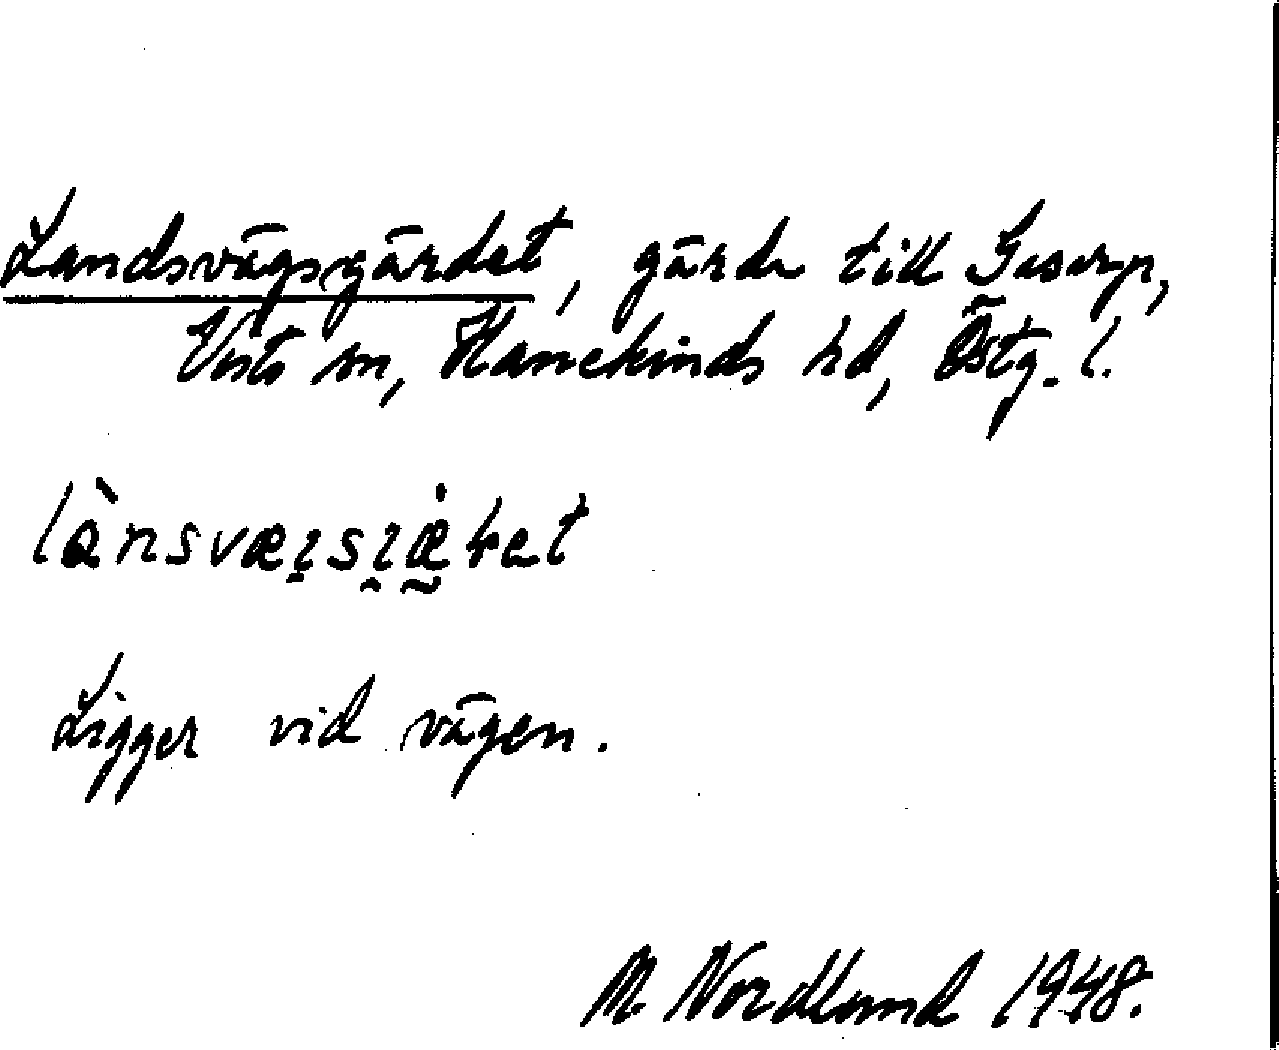 Landsvägsgärdet, gärde till Gaserp,
Vists sn, Hanekinds hd, Östg. l.
Ligger vid vägen.
M. Nordlund 1948.